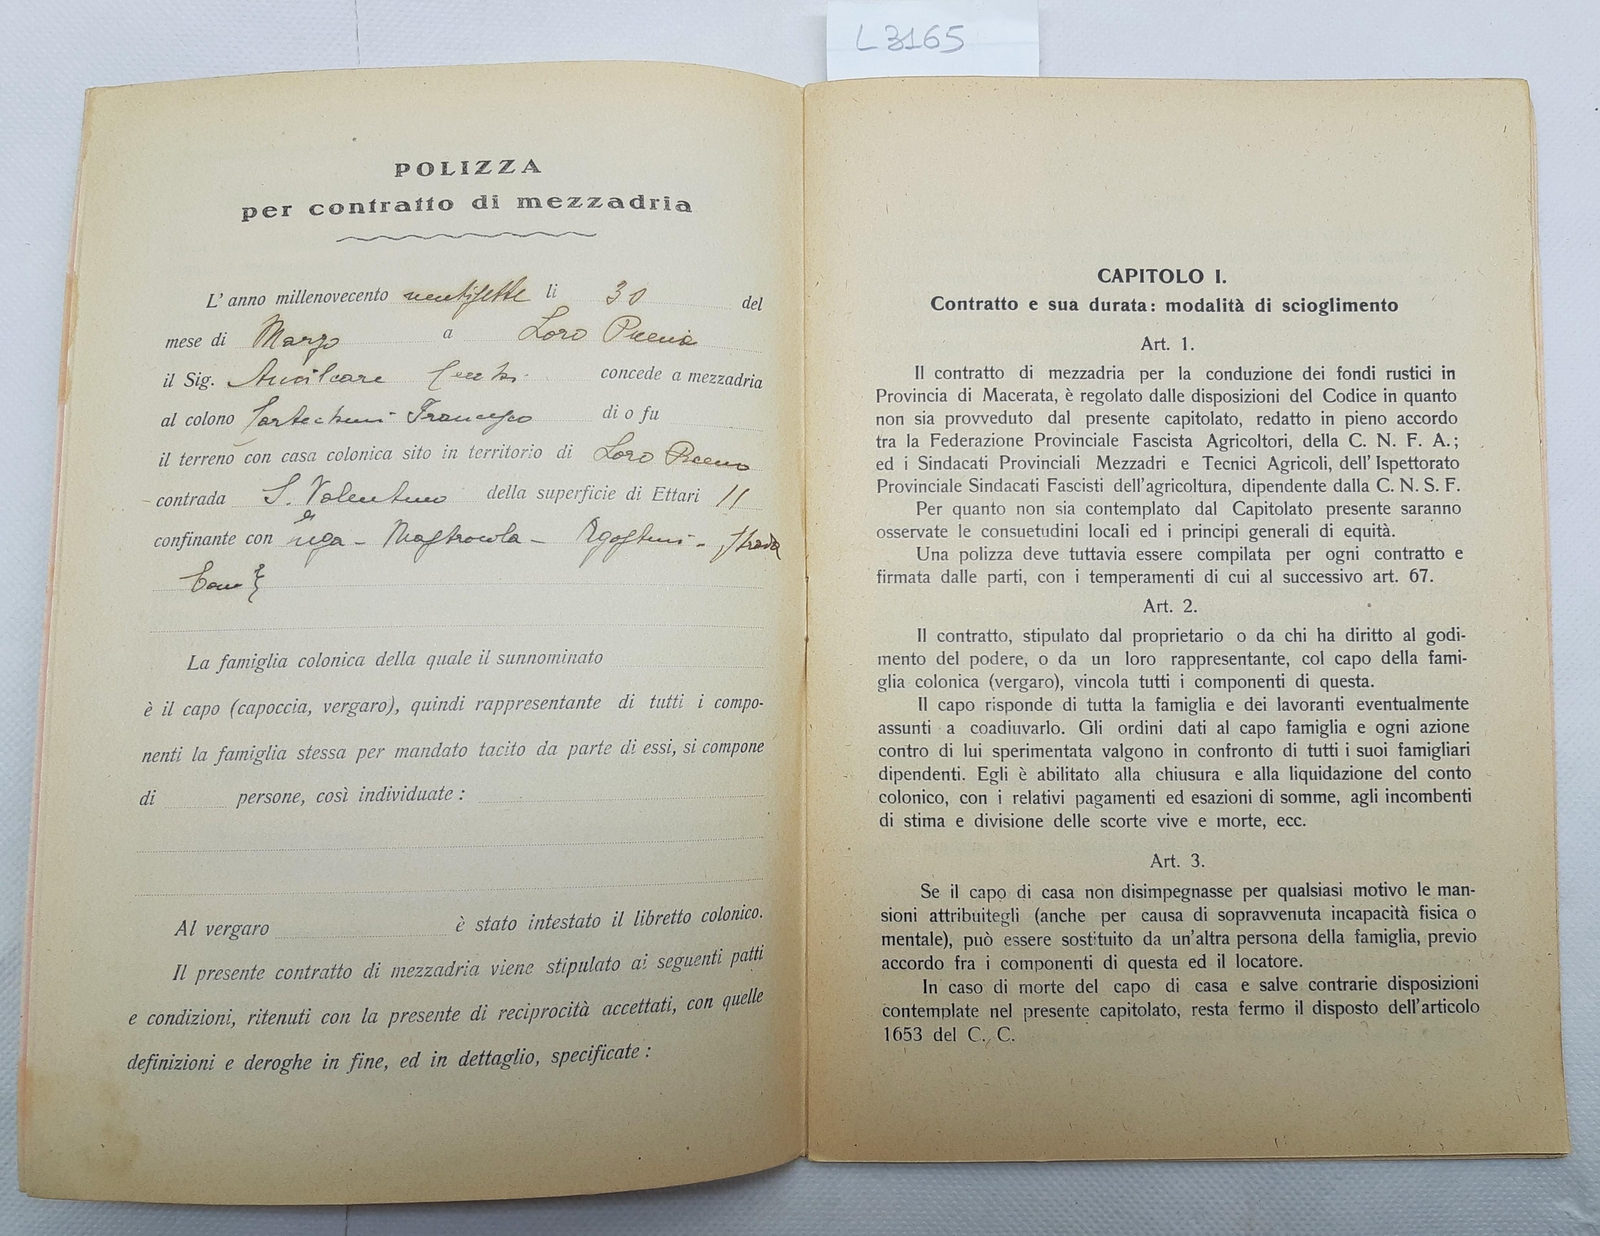 L3165
POLIZZA
per contratto di mezzadria
L' anno millenovecento ventisette li 30 del
mese di Marzo a Loro Piceno
il Sig. Amilcare concede a mezzadria
al colono Francesco di o fu
il terreno con casa colonica sito in territorio di Loro Piceno
contrada S. Valentino della superficie di Ettari 11
confinante con - Mastrocola - Agostini - strada
La famiglia colonica della quale il sunnominato
è il capo (capoccia, vergaro), quindi rappresentante di tutti i compo-
nenti la famiglia stessa per mandato tacito da parte di essi, si compone
di persone, così individuate :
Al vergaro è stato intestato il libretto colonico.
Il presente contratto di mezzadria viene stipulato ai seguenti patti
e condizioni, ritenuti con la presente di reciprocità accettati, con quelle
definizioni e deroghe in fine, ed in dettaglio, specificate :
CAPITOLO I.
Contratto e sua durata: modalità di scioglimento
Art. 1.
Il contratto di mezzadria per la conduzione dei fondi rustici in
Provincia di Macerata, è regolato dalle disposizioni del Codice in quanto
non sia provveduto dal presente capitolato, redatto in pieno accordo
tra la Federazione Provinciale Fascista Agricoltori, della C. N. F. A.;
ed i Sindacati Provinciali Mezzadri e Tecnici Agricoli, dell'Ispettorato
Provinciale Sindacati Fascisti dell'agricoltura, dipendente dalla C. N. S. F.
Per quanto non sia contemplato dal Capitolato presente saranno
osservate le consuetudini locali ed i principi generali di equità.
Una polizza deve tuttavia essere compilata per ogni contratto e
firmata dalle parti, con i temperamenti di cui al successivo art. 67.
Art. 2.
Il contratto, stipulato dal proprietario o da chi ha diritto al godi-
mento del podere, o da un loro rappresentante, col capo della fami-
glia colonica (vergaro), vincola tutti i componenti di questa.
Il capo risponde di tutta la famiglia e dei lavoranti eventualmente
assunti a coadiuvarlo. Gli ordini dati al capo famiglia e ogni azione
contro di lui sperimentata valgono in confronto di tutti i suoi famigliari
dipendenti. Egli è abilitato alla chiusura e alla liquidazione del conto
colonico, con i relativi pagamenti ed esazioni di somme, agli incombenti
di stima e divisione delle scorte vive e morte, ecc.
Art. 3.
Se il capo di casa non disimpegnasse per qualsiasi motivo le man-
sioni attribuitegli (anche per causa di sopravvenuta incapacità fisica o
mentale), può essere sostituito da un'altra persona della famiglia, previo
accordo fra i componenti di questa ed il locatore.
In caso di morte del capo di casa e salve contrarie disposizioni
contemplate nel presente capitolato, resta fermo il disposto dell'articolo
1653 del C. C.